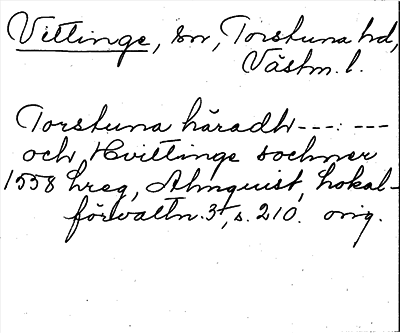 Vittinge, sn, Torstuna hd,
Västm. l.
Torstuna häradh ---: ---
och Hvittinge sochner
1558 hreg, Almquist, Lokal-
förvaltn. 3, s. 210. orig.